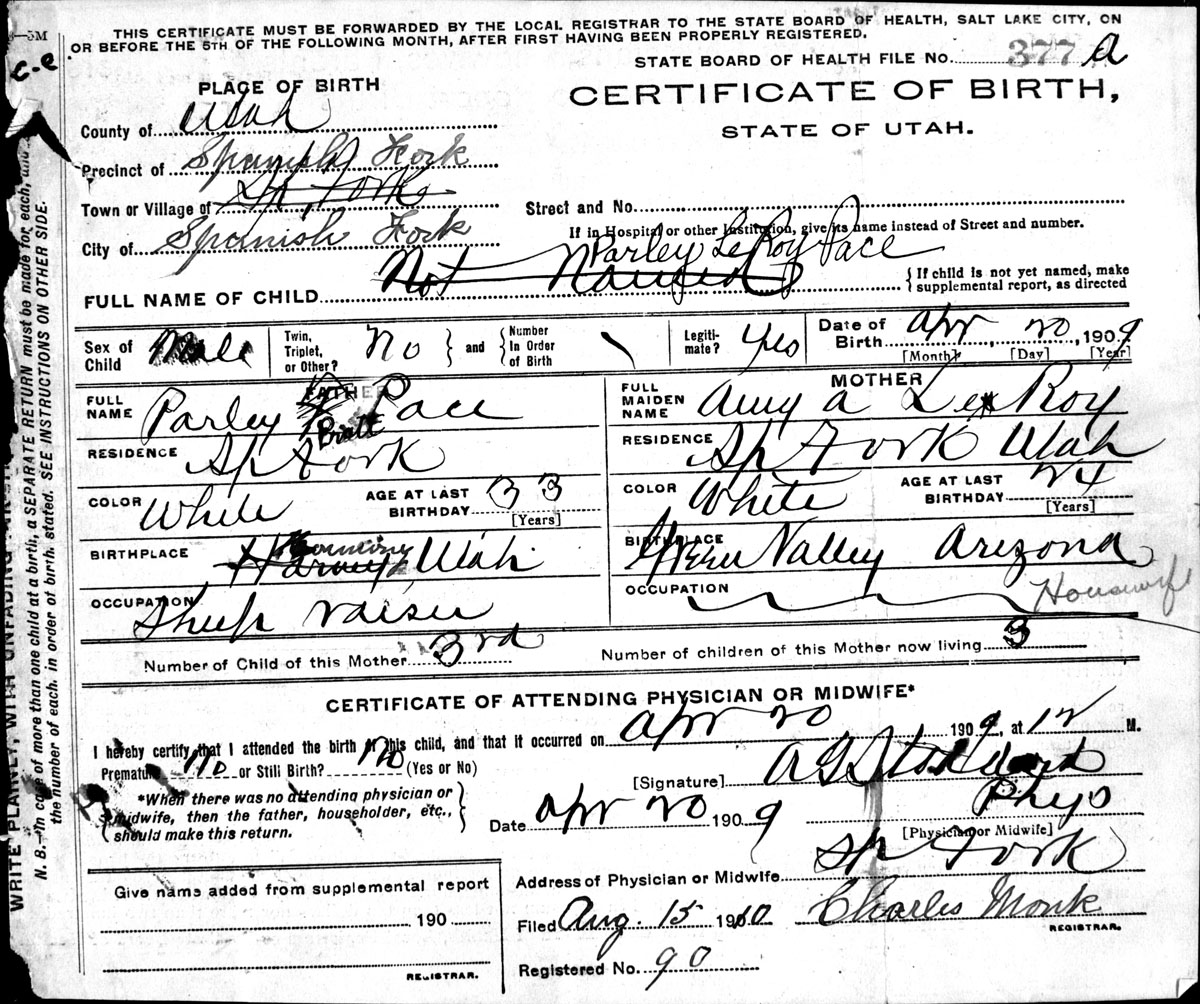 3—5M
THIS CERTIFICATE MUST BE FORWARDED BY THE LOCAL REGISTRAR TO THE STATE BOARD OF HEALTH, SALT LAKE CITY, ON
OR BEFORE THE 5TH OF THE FOLLOWING MONTH, AFTER FIRST HAVING BEEN PROPERLY REGISTERED.
C.C.
STATE BOARD OF HEALTH FILE NO. 377 a
PLACE OF BIRTH
CERTIFICATE OF BIRTH,
STATE OF UTAH.
County of Utah
Precinct of Spanish Fork
Town or Village of Sp. Fork
City of Spanish Fork
Street and No.
If in Hospital or other Institution, give its name instead of Street and number.
Parley LeRoy Pace
FULL NAME OF CHILD Not Named
{If child is not yet named, make
supplemental report, as directed
Sex of Child Male
Twin, Triplet, or Other? No } and { Number In Order of Birth
Legiti-mate? Yes
Date of Birth Apr, 20, 1909
[Month] [Day] [Year]
FATHER
FULL NAME Parley Pratt Pace
RESIDENCE Sp Fork
COLOR White
AGE AT LAST BIRTHDAY 33
[Years]
BIRTHPLACE Harvey Utah
OCCUPATION Sheep raiser
MOTHER
FULL MAIDEN NAME Amy A Le Roy
RESIDENCE Sp Fork Utah
COLOR White
AGE AT LAST BIRTHDAY 24
[Years]
BIRTHPLACE Green Valley Arizona
OCCUPATION Housewife
Number of Child of this Mother 3rd
Number of children of this Mother now living 3
CERTIFICATE OF ATTENDING PHYSICIAN OR MIDWIFE*
I hereby certify that I attended the birth of this child, and that it occurred on Apr 20 1909, at 12 M.
Premature No or Still Birth? No (Yes or No)
*When there was no attending physician or
midwife, then the father, householder, etc.,
should make this return.
[Signature] Stoddard
Phys
[Physician or Midwife]
Date Apr 20 1909
Address of Physician or Midwife Sp Fork
Filed Aug. 15 1910 Charles Monk
REGISTRAR.
Registered No. 90
Give name added from supplemental report
190
REGISTRAR.
WRITE PLAINLY, WITH UNFADING
N. B.—In case of more than one child at a birth, a SEPARATE RETURN must be made for each, and
the number of each, in order of birth, stated. SEE INSTRUCTIONS ON OTHER SIDE.